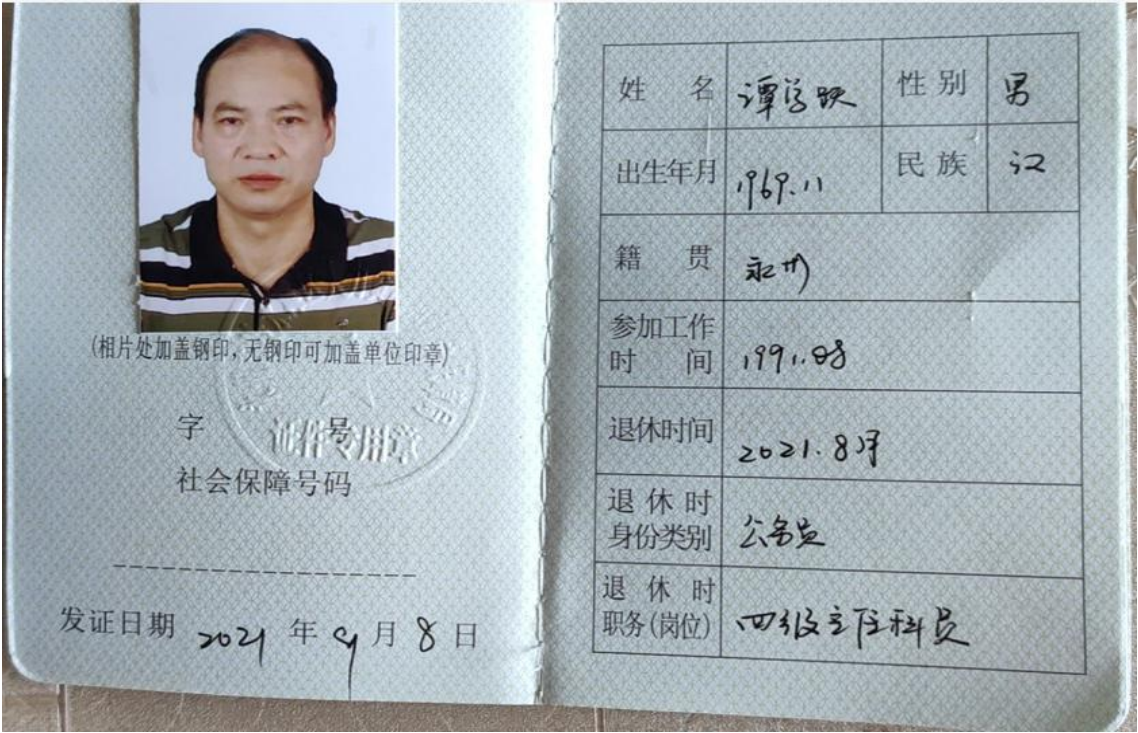 (相片处加盖钢印，无钢印可加盖单位印章)
证件专用章
字 号
社会保障号码
发证日期 2021 年 9 月 8 日
姓 名 谭学跃 性 别 男
出生年月 1969.11 民 族 汉
籍 贯 永州
参加工作
时 间 1991.08
退休时间 2021.8月
退 休 时
身份类别 公务员
退 休 时
职务(岗位) 四级主任科员